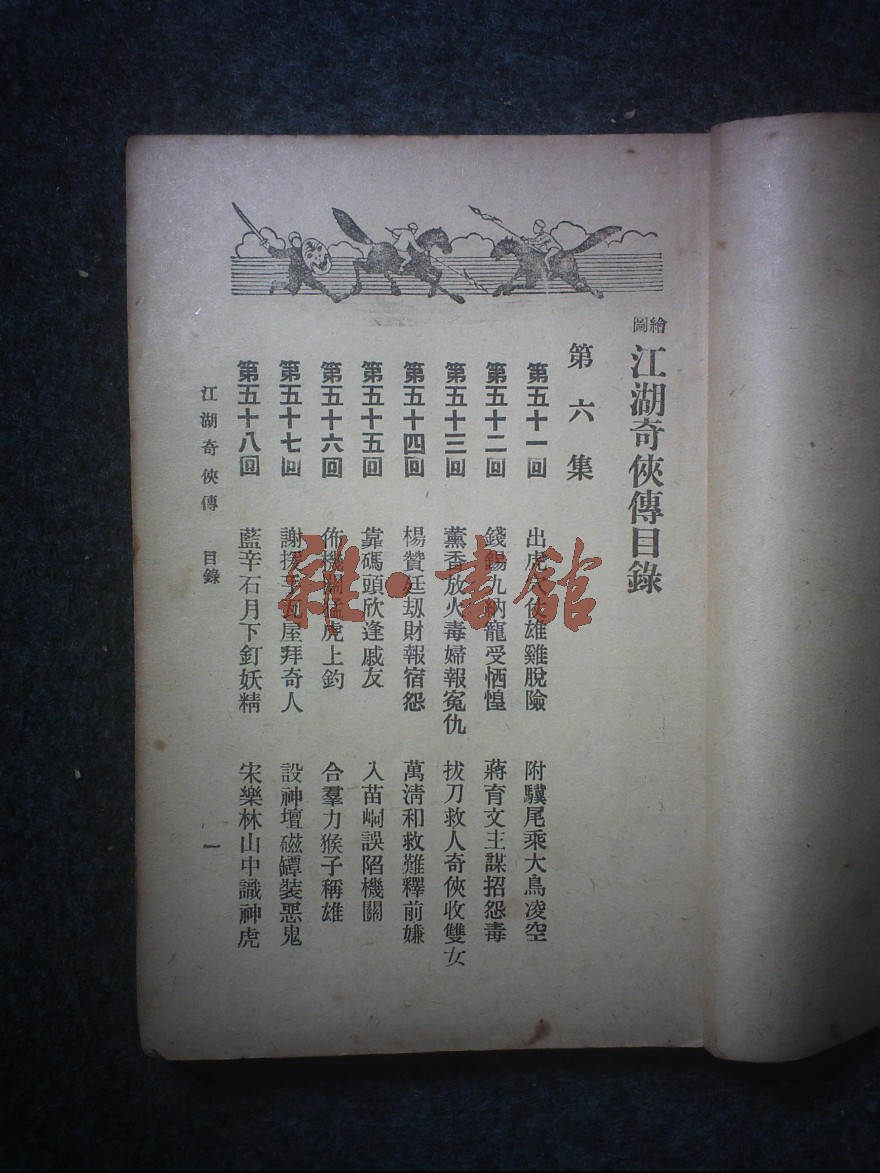 繪圖 江湖奇俠傳目錄
第六集
第五十一回 出虎穴仗雄雞脫險 附驥尾乘大鳥凌空
第五十二回 錢錫九納寵受恓惶 蔣育文主謀招怨毒
第五十三回 薰香放火毒婦報冤仇 拔刀救人奇俠收雙女
第五十四回 楊贊廷刼財報宿怨 萬淸和救難釋前嫌
第五十五回 靠碼頭欣逢戚友 入苗峒誤陷機關
第五十六回 佈機關猛虎上釣 合羣力猴子稱雄
第五十七回 謝援手瓦屋拜奇人 設神壇磁罈裝惡鬼
第五十八回 藍辛石月下釘妖精 宋樂林山中識神虎
江湖奇俠傳 目錄 一
雜·書館